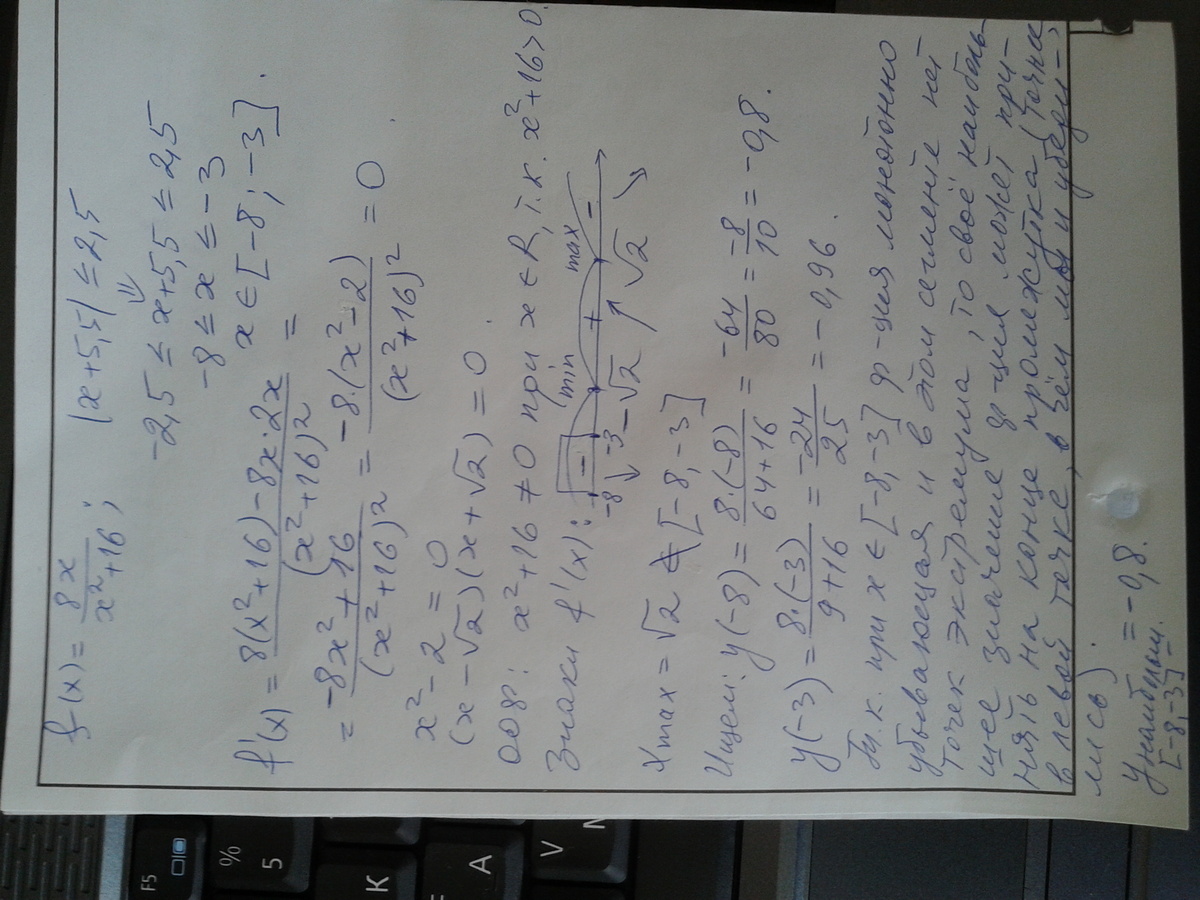 f(x) = 8x / x²+16 ; |x+5,5| ≤ 2,5
⇓
-2,5 ≤ x+5,5 ≤ 2,5
-8 ≤ x ≤ -3
x ∈ [-8; -3].
f'(x) = 8(x²+16) - 8x·2x / (x²+16)² =
= -8x²+16 / (x²+16)² = -8·(x²-2) / (x²+16)² = 0
x²-2 = 0
(x-√2)(x+√2) = 0.
ООФ: x²+16 ≠ 0 при x ∈ R, т.к. x²+16>0.
min max
Знаки f'(x): - + -
-8 ↓ -3 -√2 ↗ √2 ↘
xmax = √2 ∉ [-8,-3]
Ищем: y(-8) = 8·(-8) / 64+16 = -64 / 80 = -8 / 10 = -0,8.
y(-3) = 8·(-3) / 9+16 = -24 / 25 = -0,96.
Т.к. при x ∈ [-8,-3] ф-ция монотонно
убывающая и в этом сегменте нет
точек экстремума, то своё наиболь-
шее значение ф-ция может при-
нять на конце промежутка (точнее
в левой точке, в чём мы и убеди-
лись).
y наибольш. = -0,8.
[-8,-3]
F5
%
5
K
A
V